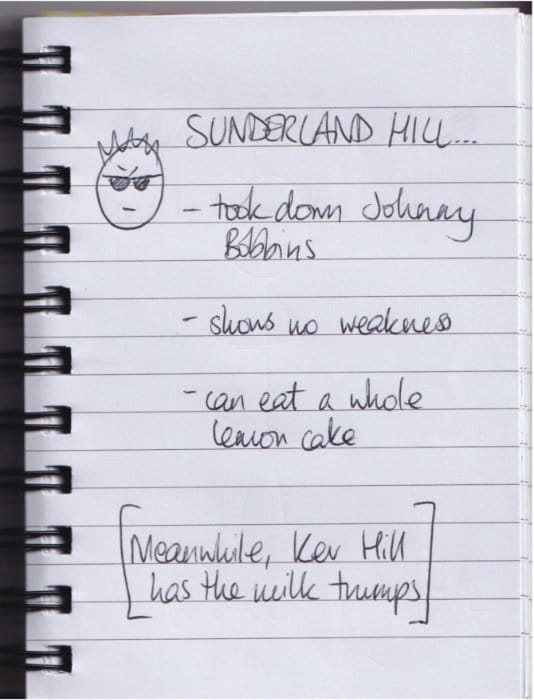 SUNDERLAND HILL...
- took down Johnny
Bobbins
- shows no weakness
- can eat a whole
lemon cake
[Meanwhile, Kev Hill
has the milk trumps]